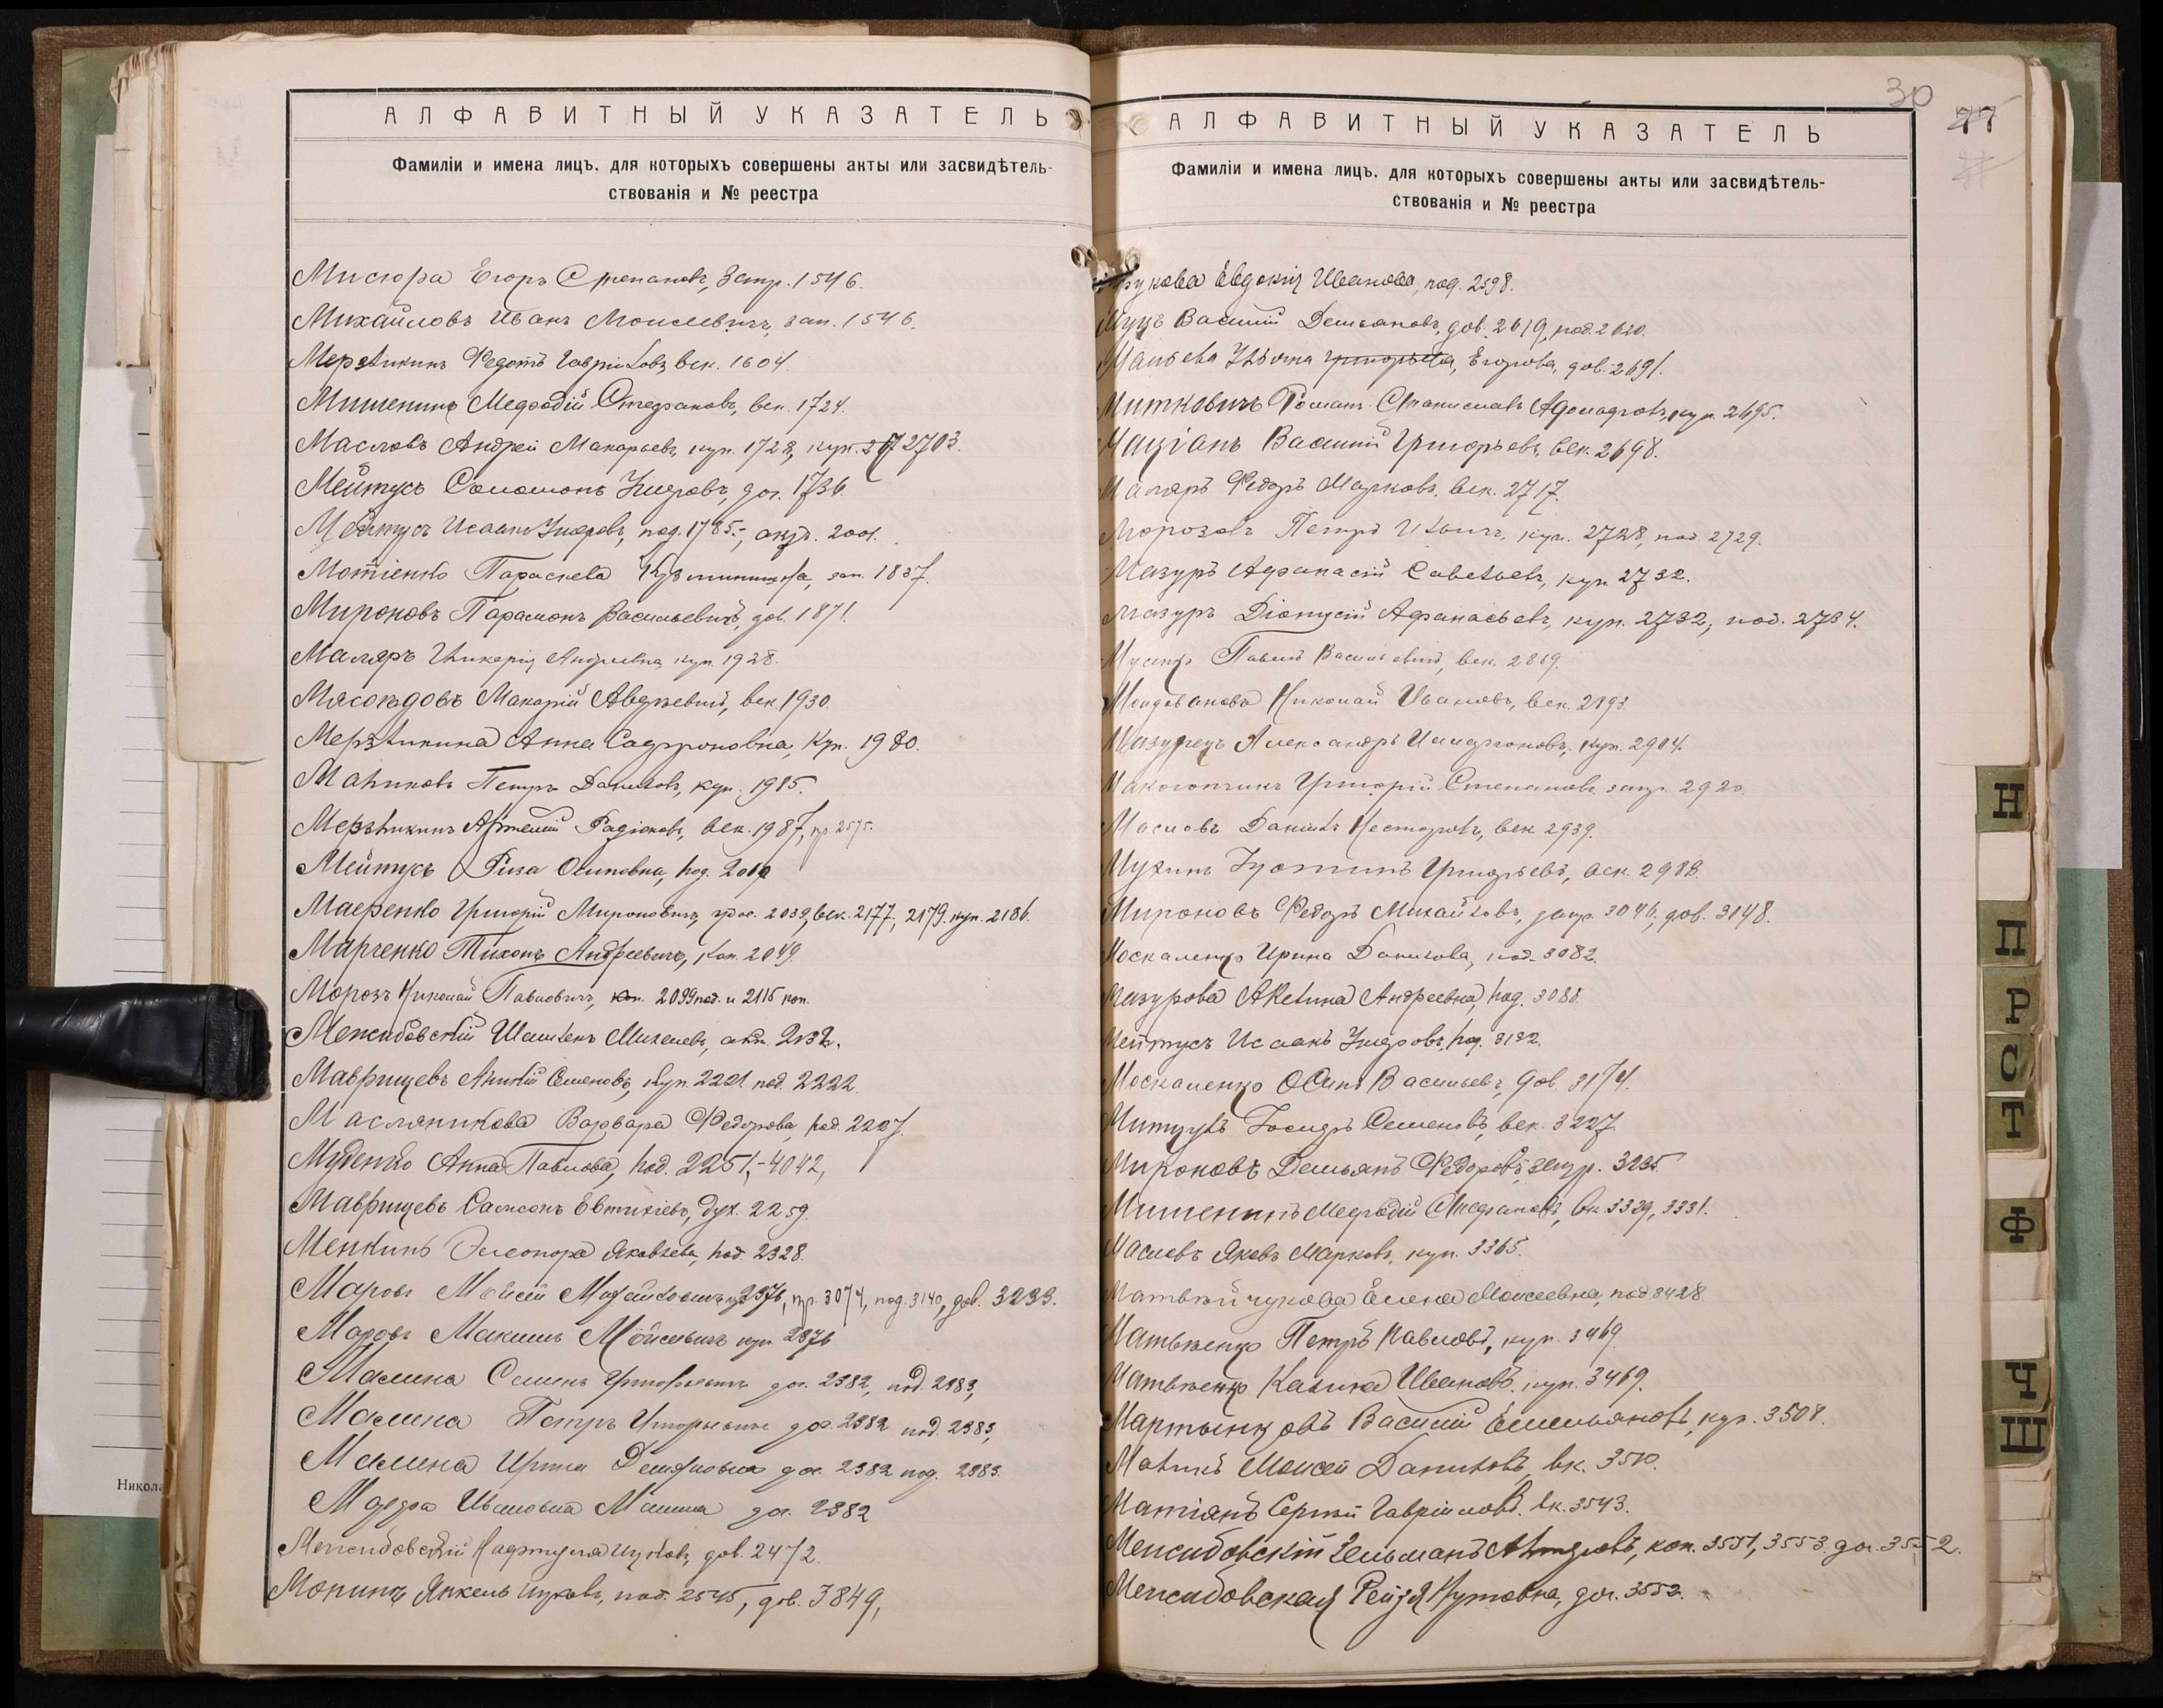 АЛФАВИТНЫЙ УКАЗАТЕЛЬ
Фамиліи и имена лицъ, для которыхъ совершены акты или засвидѣтель-
ствованія и № реестра
Мисюра Егоръ Степановъ, запр. 1546.
Михайловъ Иванъ Моисеевичъ, зап. 1546.
Мерзликинъ Федотъ Гавриловъ, век. 1604.
Мишенинъ Мефодій Стефановъ, век. 1724.
Масловъ Андрей Макарьевъ, куп. 1728, куп. 2703.
Мейтусъ Соломонъ, дог. 1736.
Мейтусъ Исаакъ, под. 1785, 2001.
Мотіенко Параскева, зап. 1837.
Мироновъ Парамонъ Васильевичъ, дов. 1871.
Маляръ Гликерія Андреевна, куп. 1928.
Мясоѣдовъ Макарій Авдѣевичъ, век. 1930.
Мерзликина Анна Софроновна, куп. 1980.
Маликовъ Петръ Даниловъ, куп. 1985.
Мерзликинъ Артемій Радіоновъ, век. 1987, пр. 2575.
Мейтусъ Осиповна, под.
Маеренко Григорій Мироновичъ, 2039, век. 2177, 2179, куп. 2186.
Марченко Тихонъ Андреевичъ, коп. 2049.
Морозъ Николай Павловичъ, 2099 под. и 2115 коп.
Межибовскій, 2132.
Маврищевъ Семеновъ, куп. 2221 под. 2222.
Масляникова Варвара Федорова, под. 2227.
Муденко Анна Павлова, под. 2251, - 4042,
Маврищевъ Самсонъ Евтихіевъ, дух. 2259.
Менкинъ Элеонора Яковлева, под. 2328.
Маровъ Мойсей Михайловичъ 2376, пр. 3074, под. 3140, дов. 3233.
Маровъ Максимъ Мойсеевичъ куп. 2376
Малина Семенъ Григорьевичъ дог. 2382, под. 2383,
Малина Петръ Григорьевичъ дог. 2382 под. 2383,
Малина дог. 2382 под. 2383.
Ивановна Малина дог. 2382
Межибовскій, дов. 2472.
Янкель, под. 2545, дов. 3849,
30
77
АЛФАВИТНЫЙ УКАЗАТЕЛЬ
Фамиліи и имена лицъ, для которыхъ совершены акты или засвидѣтель-
ствованія и № реестра
Евдокія Иванова, под. 2598.
Муцъ Василій Демьяновъ, дов. 2619, под. 2620.
Ульяна Григорьева, Егорова, дов. 2691.
Миткевичъ Романъ Станиславъ Адольфовъ, куп. 2695.
Маціанъ Василій Григорьевъ, век. 2698.
Маляръ Федоръ Марковъ, век. 2717.
Морозовъ Петръ Ильичъ, куп. 2728, под. 2729.
Мазуръ Афанасій Савельевъ, куп. 2732.
Мазуръ Діонисій Афанасьевъ, куп. 2732, под. 2734.
Мусенко Павелъ Васильевичъ, век. 2819.
Молдованова Николай Ивановъ, век. 2893.
Александръ, куп. 2904.
Макогончикъ Григорій Степановъ запр. 2920.
Масловъ Даніилъ Несторовъ, век. 2939.
Мухинъ Іустинъ Григорьевъ, век. 2988.
Мироновъ Федоръ Михайловъ, запр. 3046, дов. 3148.
Москаленко Ирина Данилова, под. 3082.
Мазурова Акелина Андреевна, под. 3088.
Мейтусъ Исаакъ, под. 3132.
Москаленко Осипъ Васильевъ, дов. 3174.
Іосифъ Семеновъ, век. 3227.
Мироновъ Демьянъ Федоровъ, запр. 3235.
Мишенинъ Мефодій Стефановъ, вк. 3329, 3331.
Масловъ Яковъ Марковъ, куп. 3365.
Матвѣйчукова Елена Моисеевна, под. 3428.
Матвѣенко Петръ Павловъ, куп. 3469.
Матвѣенко Калина Ивановъ, куп. 3469.
Мартынковъ Василій Емельяновъ, куп. 3508.
Моисей Даниловъ, вк. 3510.
Матіянъ Сергѣй Гавріиловъ, вк. 3543.
Межибовскій Зельманъ, коп. 3551, 3553 дог. 3552.
Межибовская Рейзя Нутовна, дог. 3552.
Н
П
Р
С
Т
Ф
Ч
Ш
Никола